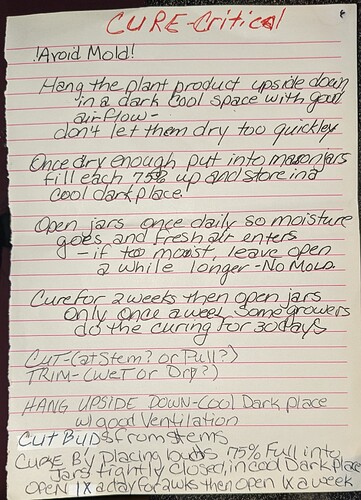 CURE-Critical
!Avoid Mold!
Hang the plant product upside down
in a dark cool space with good
airflow-
don't let them dry too quickley
Once dry enough put into mason jars
fill each 75% up and store in a
cool dark place.
Open jars once daily so moisture
goes and fresh air enters
-if too moist, leave open
a while longer-No Mold.
Cure for 2 weeks then open jars
only once a week Some growers
do the curing for 30 days
CUT-(at Stem? or Pull?)
TRIM-(WET or Dry?)
HANG UPSIDE DOWN-Cool Dark place
w/good Ventilation
Cut BUDS from stems
CURE By placing buds 75% Full into
Jars tightly closed, in cool Dark Place
OPEN 1X a day for 2wks then open 1x a week